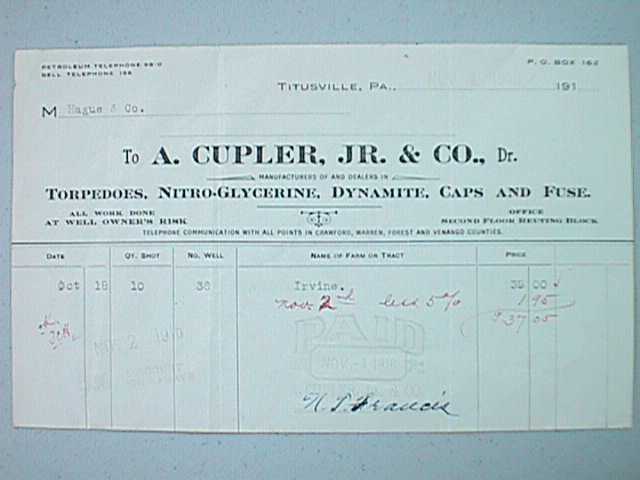 PETROLEUM TELEPHONE
BELL TELEPHONE
P. O. BOX 162
TITUSVILLE, PA., 191
M Hague & Co.
To A. CUPLER, JR. & CO., Dr.
MANUFACTURERS OF AND DEALERS IN
TORPEDOES, NITRO-GLYCERINE, DYNAMITE, CAPS AND FUSE.
ALL WORK DONE
AT WELL OWNER'S RISK
OFFICE
SECOND FLOOR REUTING BLOCK
TELEPHONE COMMUNICATION WITH ALL POINTS IN CRAWFORD, WARREN, FOREST AND VENANGO COUNTIES.
DATE QT. SHOT NO. WELL NAME OF FARM OR TRACT PRICE
Oct 18 10 36 Irvine. 39 00
Nov. 2nd less 5% 1 95
$37 05
NOV 2 1910
PAID
NOV.
N. T. Francis